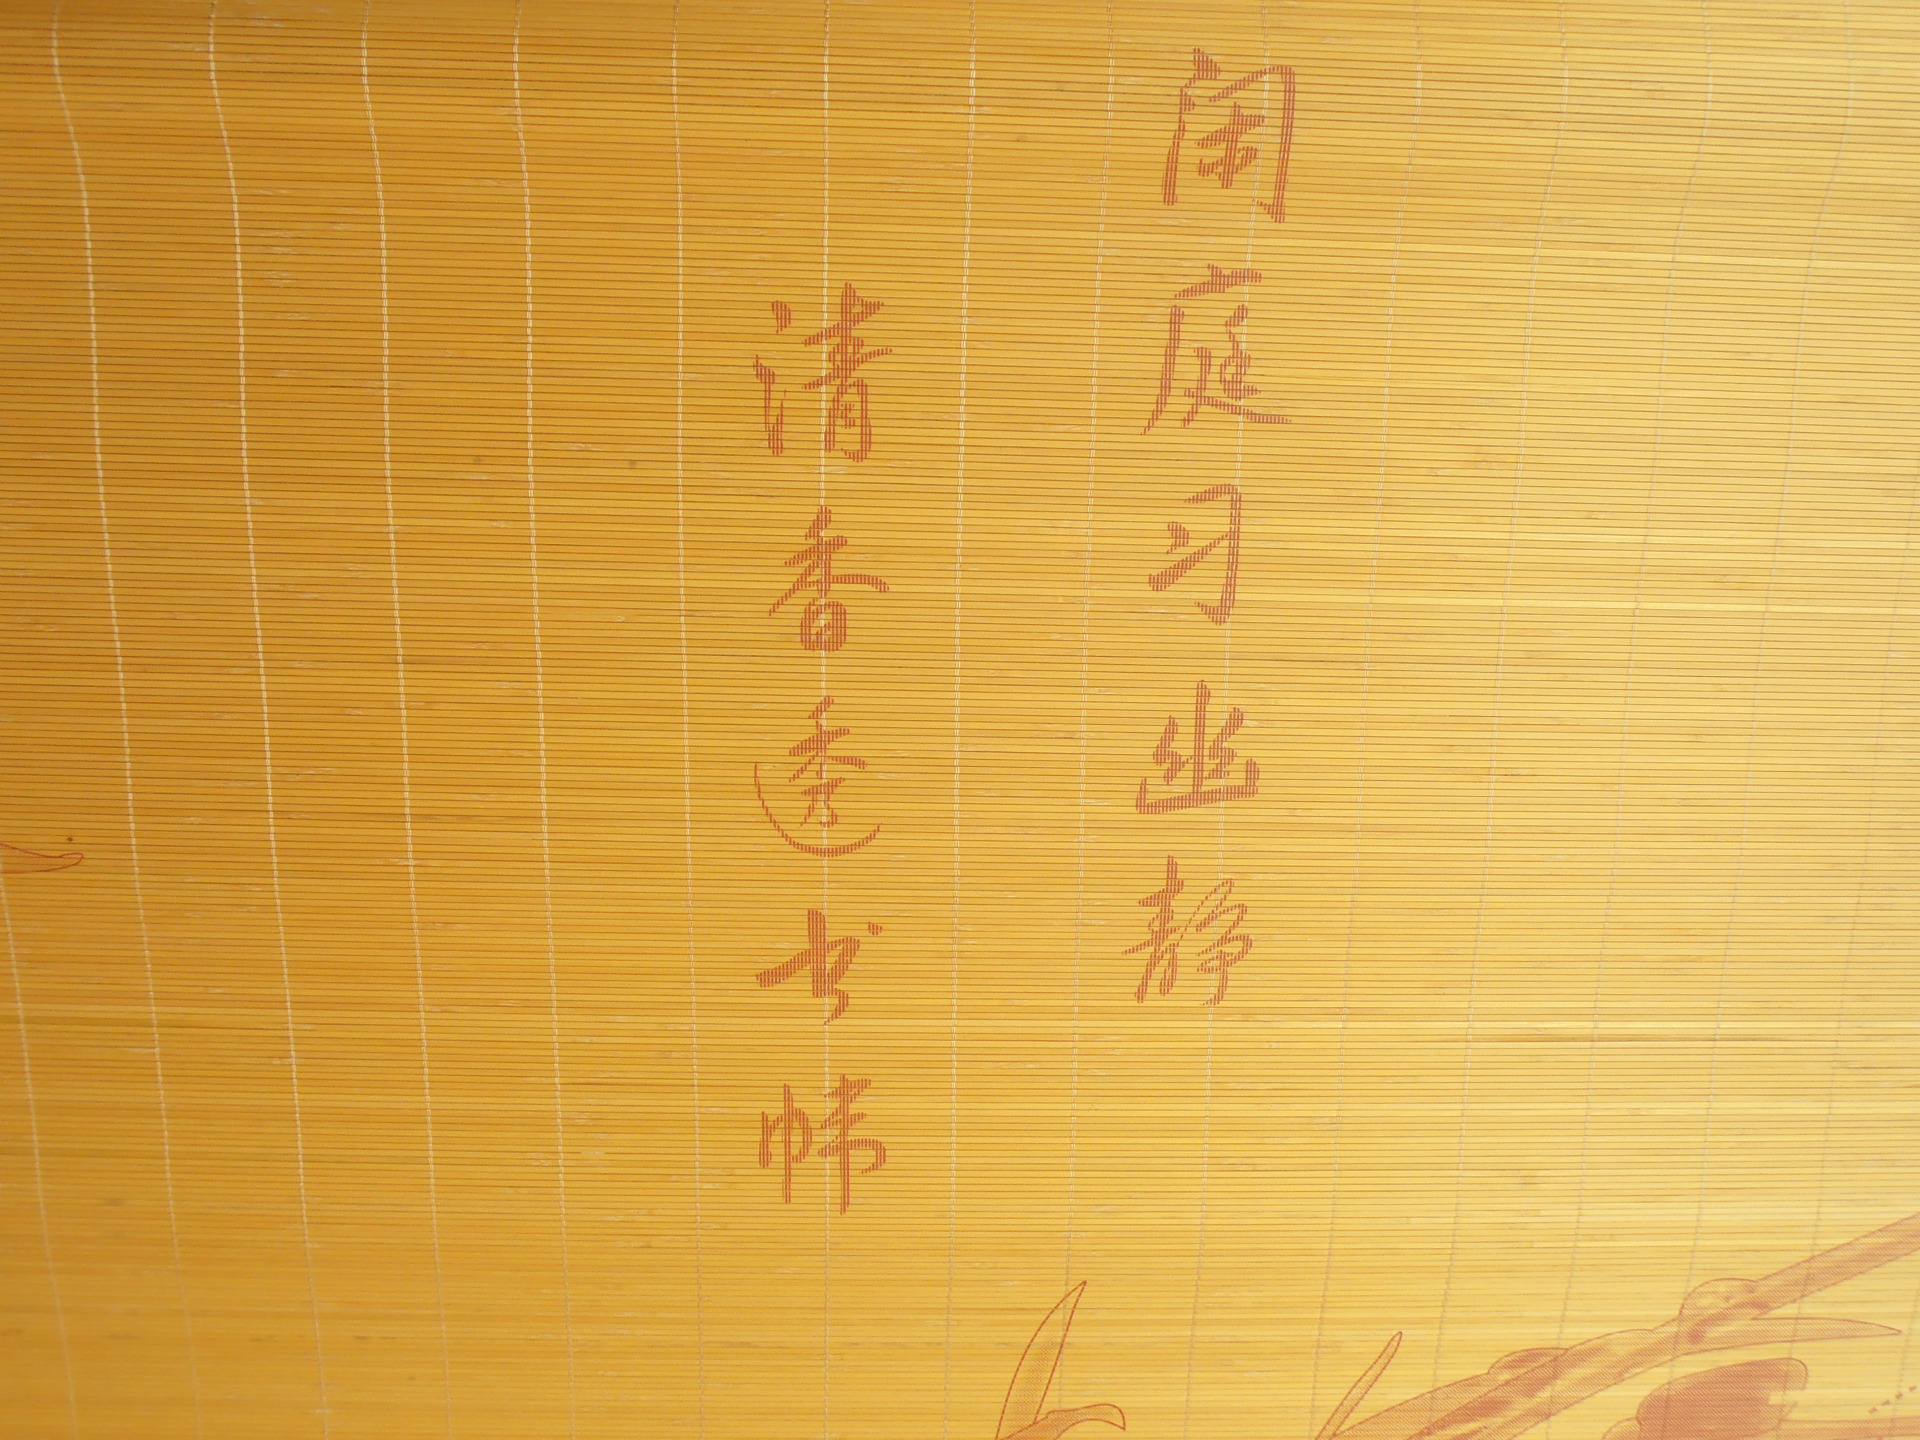 闲庭习幽静
清香透书帏